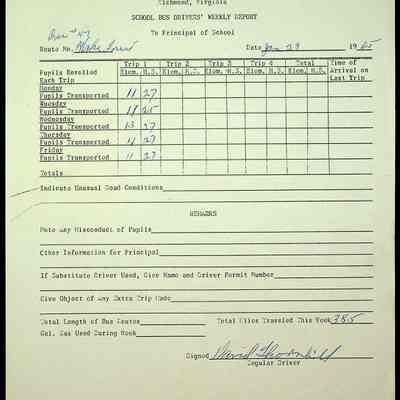 Richmond, Virginia
SCHOOL BUS DRIVERS' WEEKLY REPORT
To Principal of School
Bus # 49
Route No. Date Jan 29 1965
Trip 1 Trip 2 Trip 3 Trip 4 Total Time of
Pupils Enrolled Elem. H.S. Elem. H.S. Elem. H.S. Elem. H.S. Elem. H.S. Arrival on
Each Trip Last Trip
Monday
Pupils Transported 11 27
Tuesday
Pupils Transported 11 25
Wednesday
Pupils Transported 13 27
Thursday
Pupils Transported 11 27
Friday
Pupils Transported 11 27
Totals
Indicate Unusual Road Conditions
REMARKS
Note Any Misconduct of Pupils
Other Information for Principal
If Substitute Driver Used, Give Name and Driver Permit Number
Give Object of Any Extra Trip Made
Total Length of Bus Routes Total Miles Traveled This Week 385
Gal. Gas Used During Week
Signed David Thornhill
Regular Driver